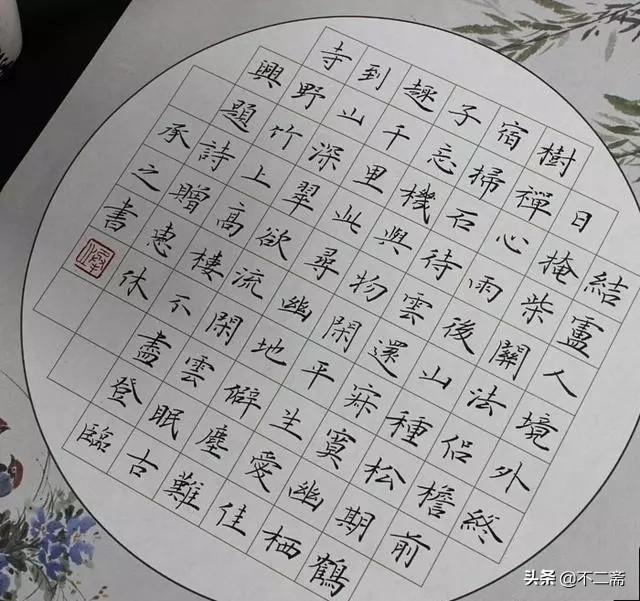 結廬人境外終
日掩柴關法侶檐前
樹禪心雨後山種松期鶴
宿掃石待雲還寂寞幽栖
子忘機與物閑平生愛佳
趣千里此尋幽地僻塵難
到山深翠欲流閑雲眠古
寺野竹上高樓不盡登臨
興題詩贈惠休
承之書
头条 @不二斋